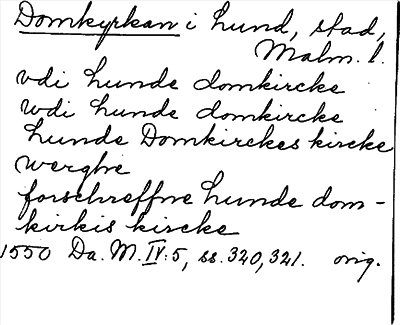 Domkyrkan i Lund, stad,
Malm. l.
vdi Lunde domkircke
wdi Lunde domkircke
Lunde Domkirckes kircke
werghe
forschreffne Lunde dom-
kirkis kircke
1550 Da. M. IV:5, ss. 320, 321. orig.